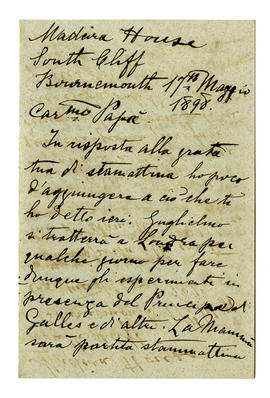 Madeira House
South Cliff
Bournemouth 17th Maggio
1898.
Carmo Papà
In risposta alla grata
tua di stamattina ho poco
d'aggiungere a ciò che ti
ho detto ieri. Guglielmo
si tratterrà a Londra per
qualche giorno per fare
dunque gli esperimenti in
presenza del Principe di
Galles e di altri. La Mamma
sarà partita stammattina